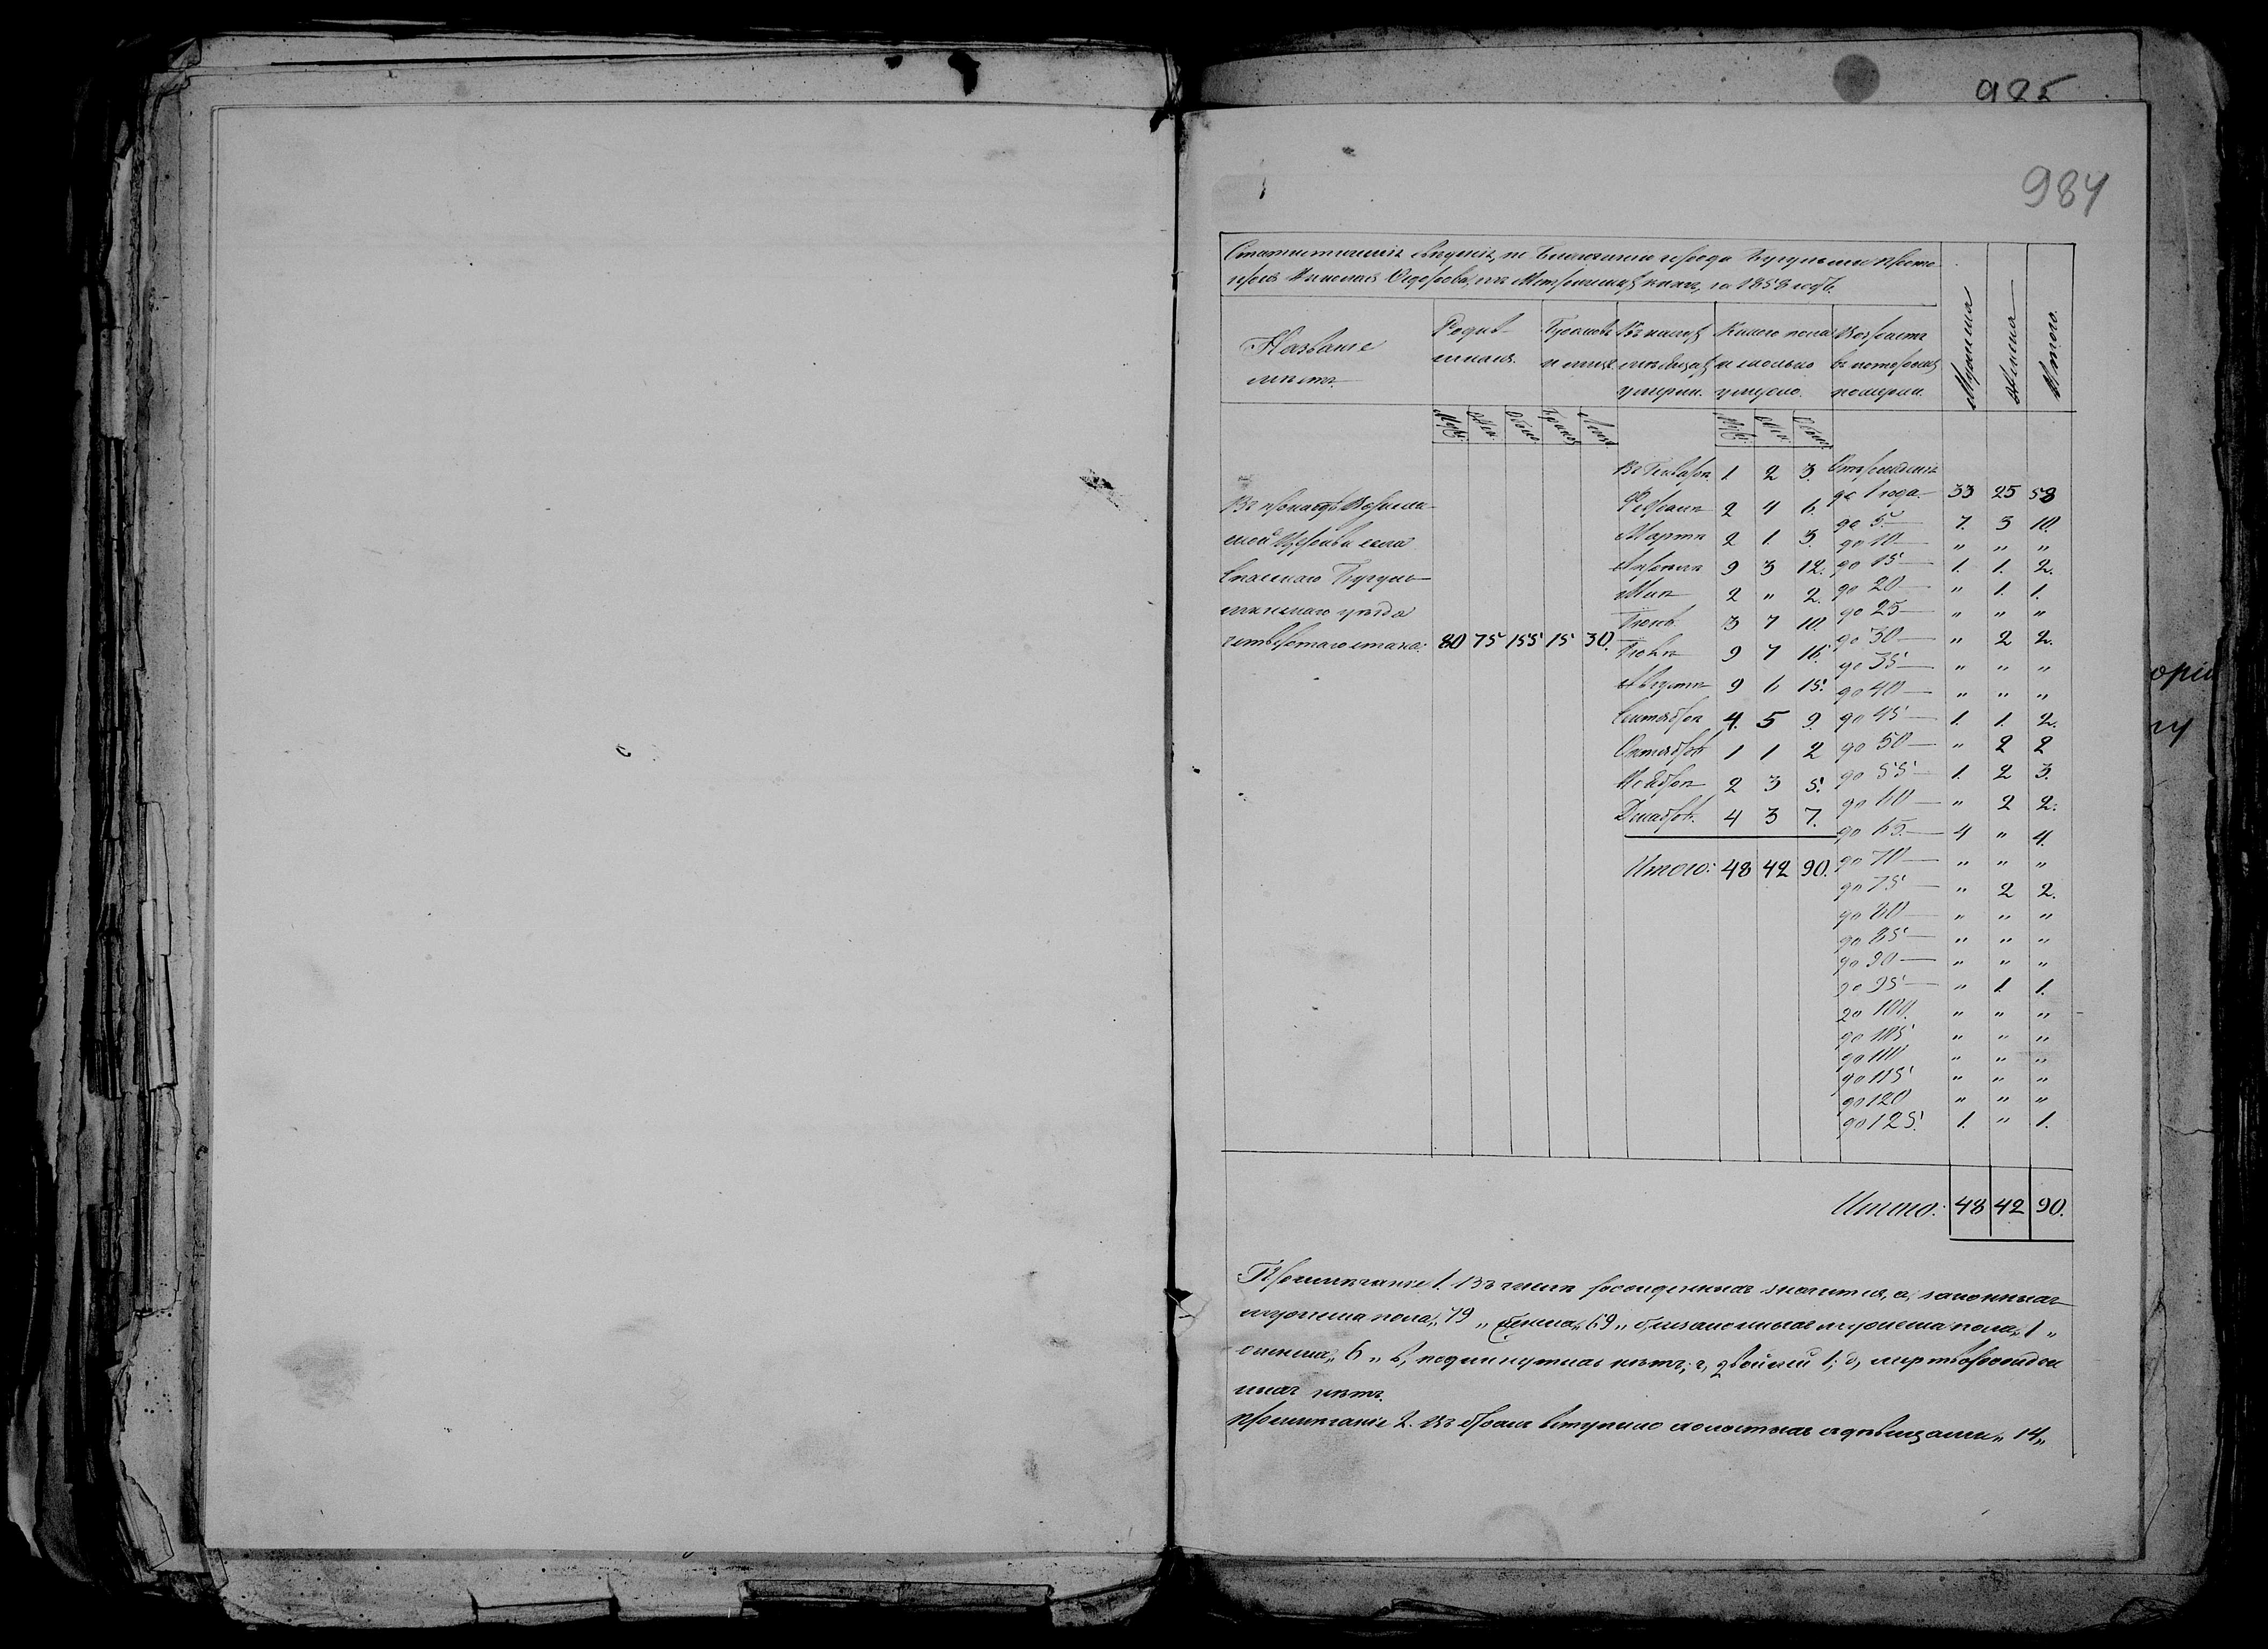 985
984
города Бугульмы Прото
за 1858 годъ.
Названіе
мѣстъ
Родив-
шихся.
Браковъ
и лицъ.
Въ какихъ
мѣсяцахъ
умерли.
Какого пола
и сколько
умерло.
Возрастъ
въ которомъ
померли.
Мужеска
Женска
Итого.
Въ приходѣ
церкви села
Спаскаго Бугуль-
минскаго уѣзда
четвертаго стана: 80 75 155 15 30.
Въ Январѣ 1 2 3.
Февралѣ 2 4 6.
Мартѣ 2 1 3.
Апрѣлѣ 9 3 12.
Маѣ 2 " 2.
Іюнѣ 3 7 10.
Іюлѣ 9 7 16.
Августѣ 9 6 15.
Сентябрѣ 4. 5 9.
Октябрѣ 1 1 2
Ноябрѣ 2 3 5.
Декабрѣ. 4 3 7.
Итого: 48 42 90.
Отъ рожденія
до 1 года — 33 25 58
до 5. — 7. 3 10.
до 10 — " " "
до 15 — 1. 1. 2.
до 20 — " 1. 1.
до 25 — " " "
до 30 — " 2 2.
до 35 — " " "
до 40 — " " "
до 45 — 1. 1. 2.
до 50 — " 2 2
до 55 — 1. 2 3.
до 60 — " 2 2.
до 65. — 4 " 4.
до 70 — " " "
до 75 — " 2 2.
до 80 — " " "
до 85 — " " "
до 90 — " " "
до 95 — " 1. 1.
до 100. " " "
до 105 " " "
до 110 " " "
до 115 " " "
до 120 " " "
до 125. 1. " 1.
Итого: 48 42 90.
Примѣчаніе 1. Въ числѣ рожденныхъ значится, а, законныхъ
мужеска пола „79„ женска „69„ б, незаконныхъ мужеска пола „1„
женска „6„ в, подкинутыхъ нѣтъ; г, двойней 1; д, мертворожден
ныхъ нѣтъ.
Примѣчаніе 2. Въ бракъ вступило холостыхъ съ дѣвицами „14„